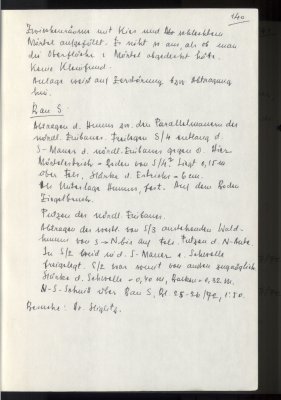 140
Zwischenräume mit Kies und schlechtem
Mörtel aufgefüllt. Es sieht so aus, als ob man
die Oberfläche m. Mörtel abgedeckt hätte.
Keine Kleinfunde.
Anlage weist auf Zerstörung bzw. Abtragung
hin.
Bau S.
Abtragen d. Humus zw. den Parallelmauern des
nördl. Einbaues. Freilegen S/4 entlang d.
S-Mauer d. nördl. Einbaues gegen O. Hier
Mörtelestrich = Boden von S/4? Liegt 0,15 m
über Fels, Stärke d. Estrichs = 6 cm.
Als Unterlage Humus, fest. Auf dem Boden
Ziegelbruch.
Putzen des nördl. Einbaues.
Abtragen des westl. von S/3 anstehenden Wald-
humus von S → N bis auf Fels. Putzen d. N-
In S/2 wird d. S-Mauer u. Schwelle
freigelegt. S/2 war somit von außen zugänglich.
Stärke d. Schwelle = 0,40 m, = 0,32 m.
N-S-Schnitt über Bau S, Bl. 25-26/72, 1:50.
Besuche: Dr.